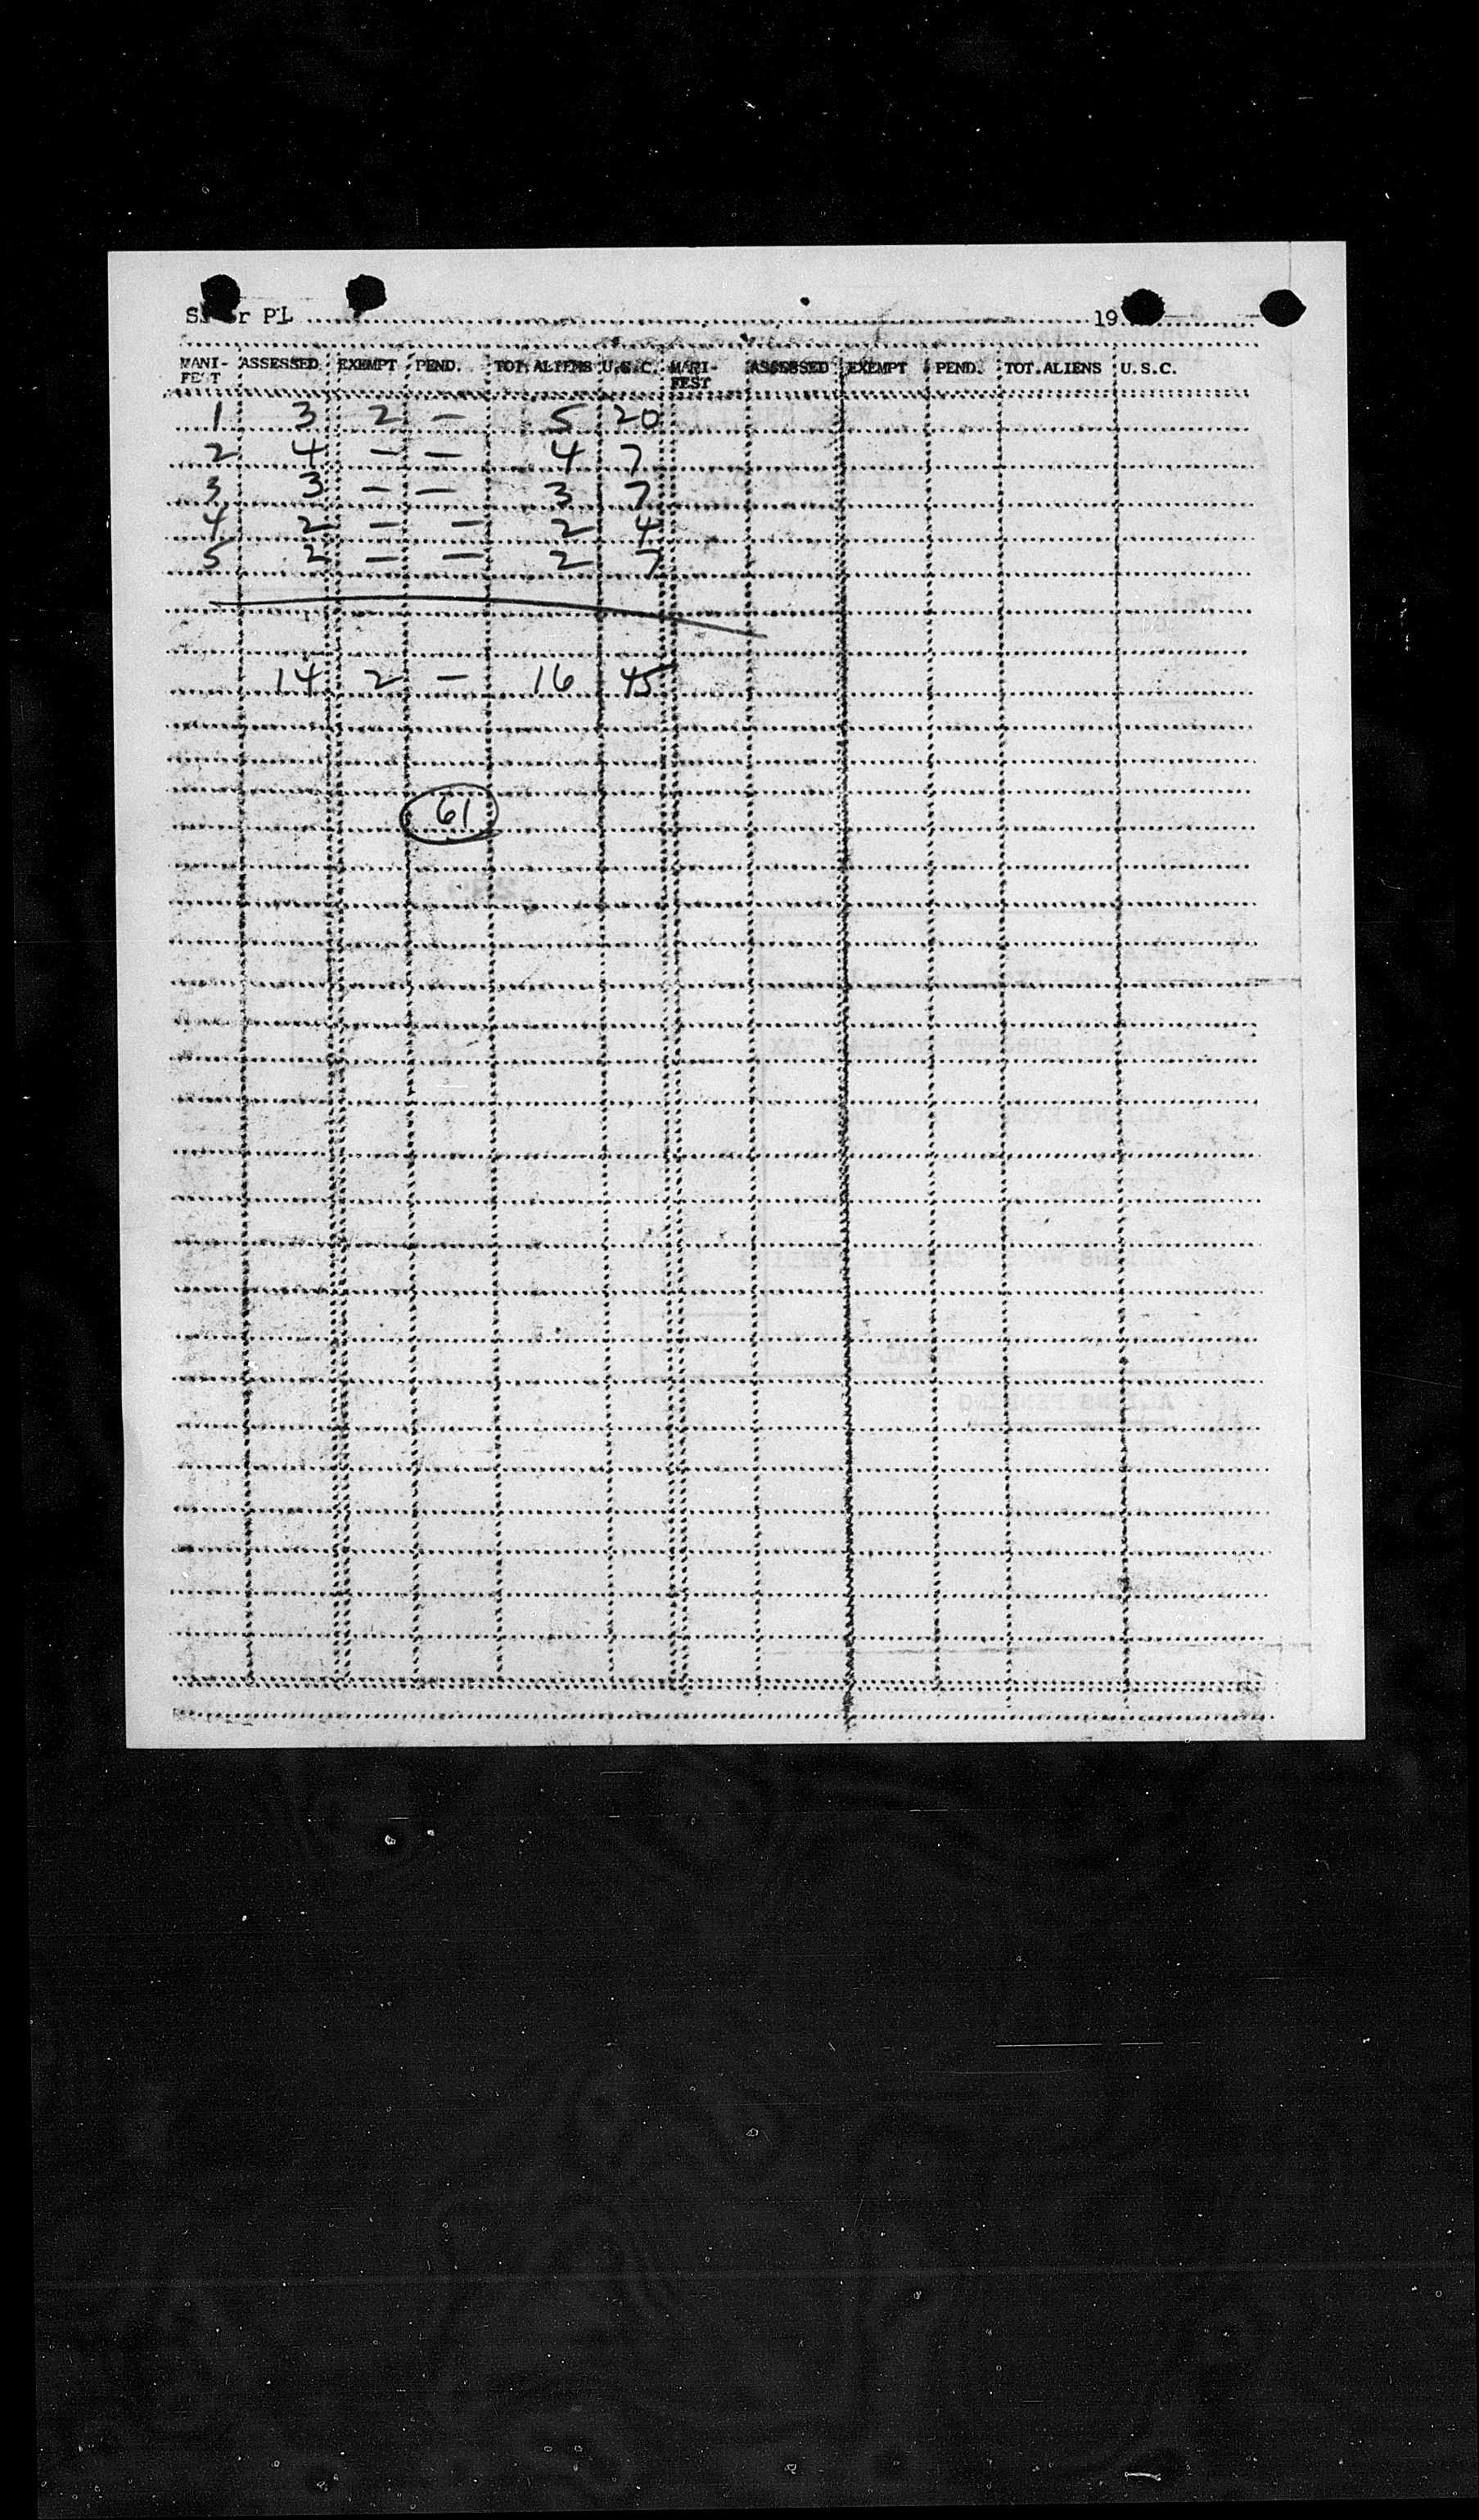 r PL 19
MANI- ASSESSED EXEMPT PEND. TOT. ALIENS U.S.C. MANI- ASSESSED EXEMPT PEND. TOT. ALIENS U.S.C.
FEST FEST
1 3 2 — 5 20
2 4 — — 4 7
3 3 — — 3 7
4 2 — — 2 4
5 2 — — 2 7
14 2 — 16 45
61